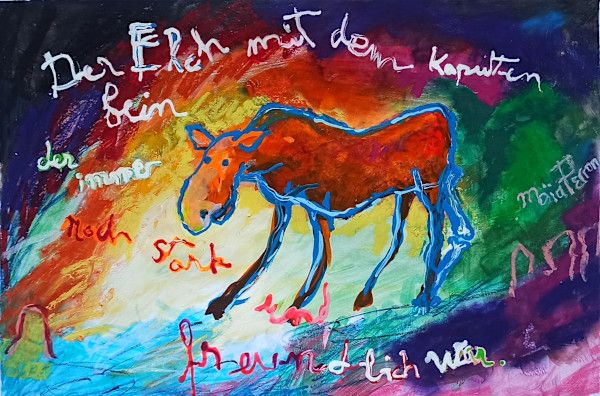 Der Elch mit dem kaputten
bein
der immer
noch stark
und
freundlich war.